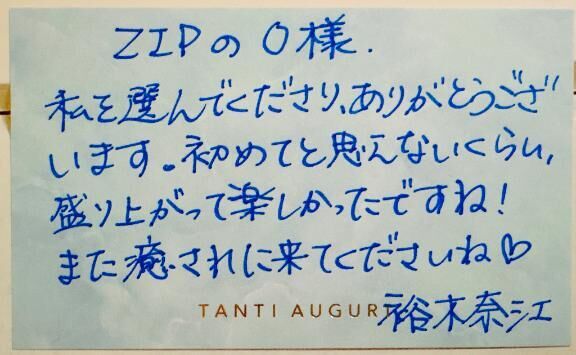 ZIPの O様.
私を選んでくださり、ありがとうござ
います。初めてと思えないくらい、
盛り上がって楽しかったですね!
また癒されに来てくださいね♡
TANTI AUGUR
裕木奈江